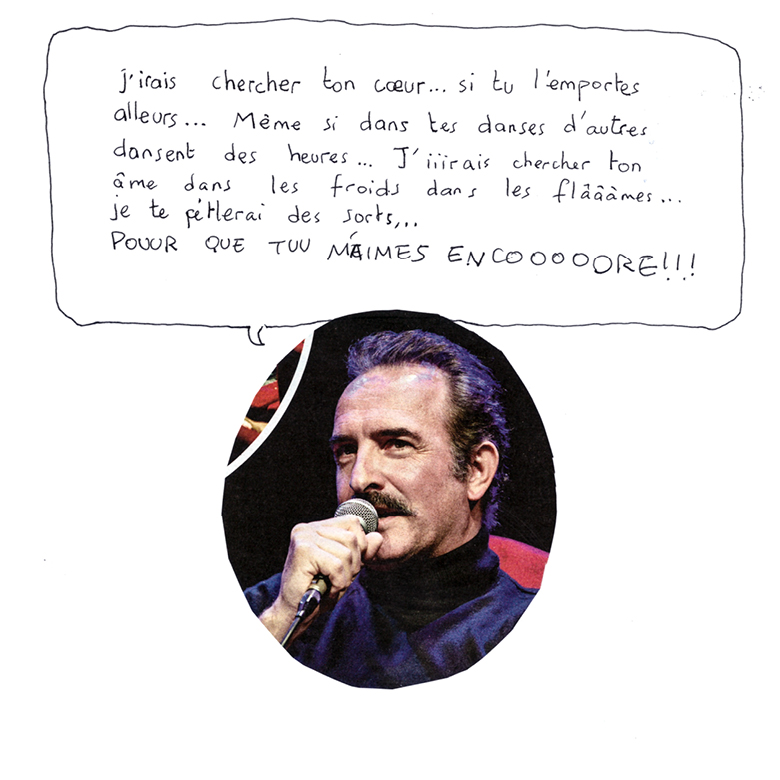 j'irais chercher ton cœur... si tu l'emportes
alleurs... Même si dans tes danses d'autres
dansent des heures... J'iiirais chercher ton
âme dans les froids dans les flâââmes...
je te pétlerai des sorts,..
POUUR QUE TUU M'AIMES ENCOOOOORE!!!